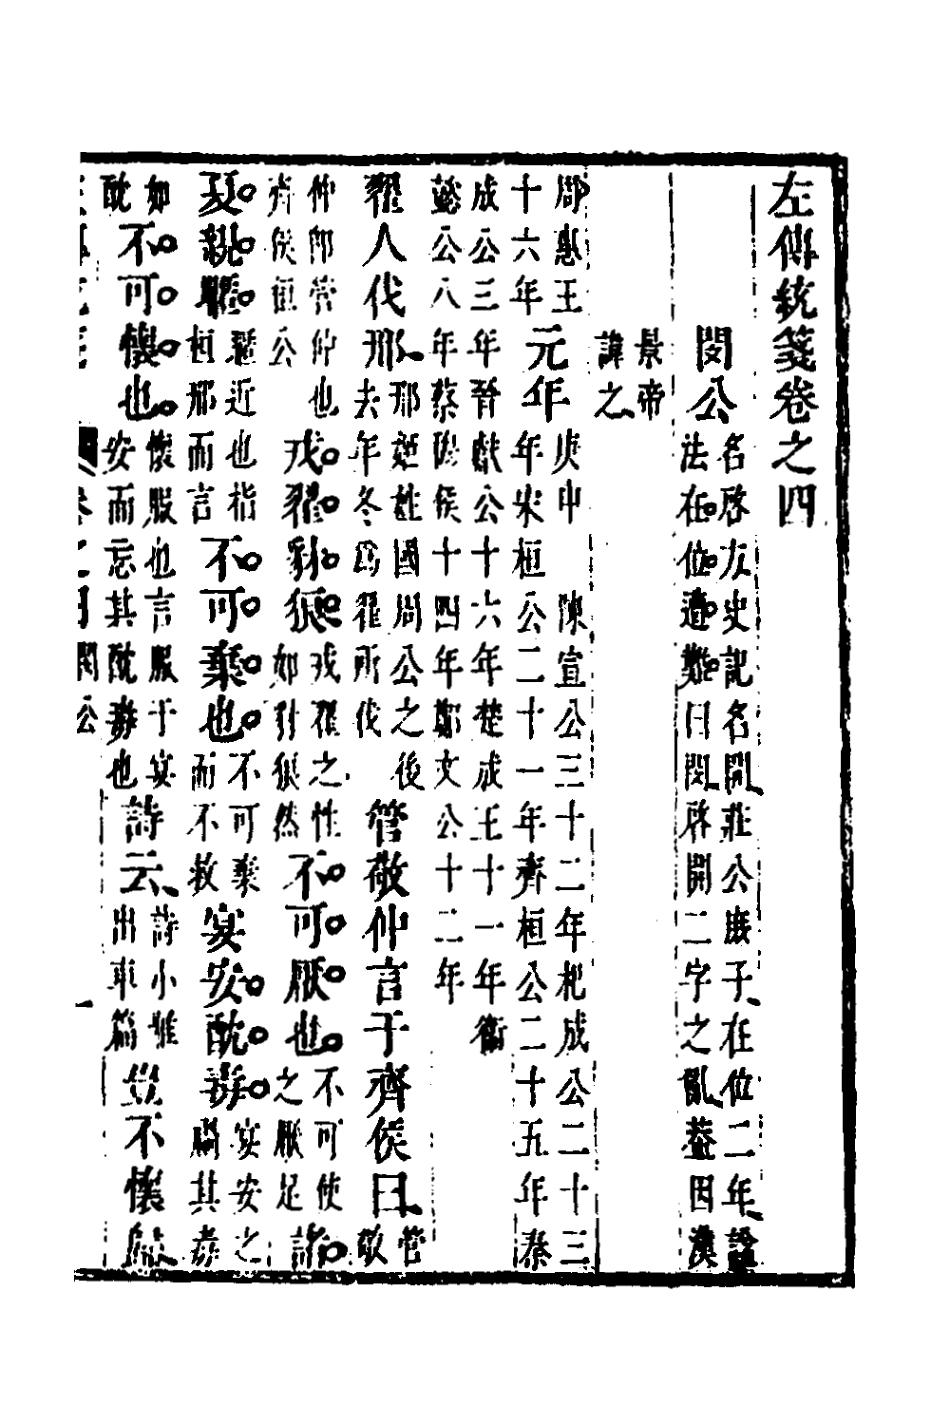 左傳統箋卷之四
閔公名啓方史記名開莊公庶子在位二年諡法在位遭難曰閔啓開二字之亂葢因漢
景帝諱之
周惠王十六年元年庚申 陳宣公三十二年杞成公二十三年宋桓公二十一年齊桓公二十五年秦
成公三年晉獻公十六年楚成王十一年衞懿公八年蔡穆侯十四年鄭文公十二年
翟人伐邢邢姬姓國周公之後去年冬爲翟所伐管敬仲言于齊侯曰管敬
仲卽管仲也齊侯桓公戎翟豺狼戎翟之性如豺狼然不可厭也不可使之厭足諸
夏親暱暱近也指桓邢而言不可棄也不可棄而不救宴安酖毒宴安之禍其毒
如酖不可懷也懷服也言服于宴安而忘其酖毒也詩云詩小雅出車篇豈不懷歸
卷之四 閔公 一